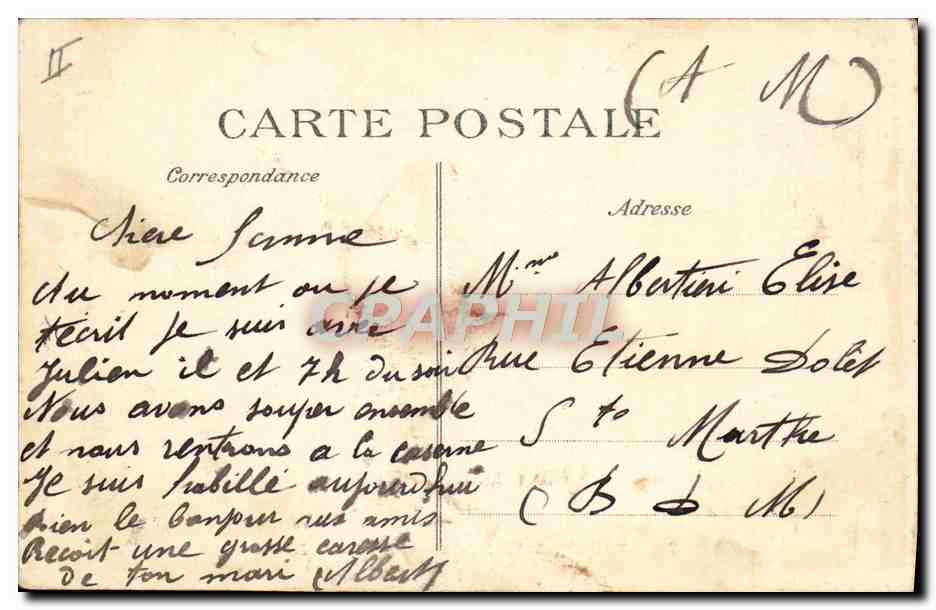 II
(A M)
CARTE POSTALE
Correspondance
Chere
Au moment ou je
t'écrit je suis avec
Julien il et 7h du soir
Nous avons souper ensemble
et nous rentrons a la caserne
Je suis habillé aujourd'hui
bien le bonjour aux amis
Recoit une grosse caresse
de ton mari (Albert)
Adresse
Mme Albertieri Elise
Rue Etienne Dolet
Ste Marthe
(B D M)
CPAPHIL